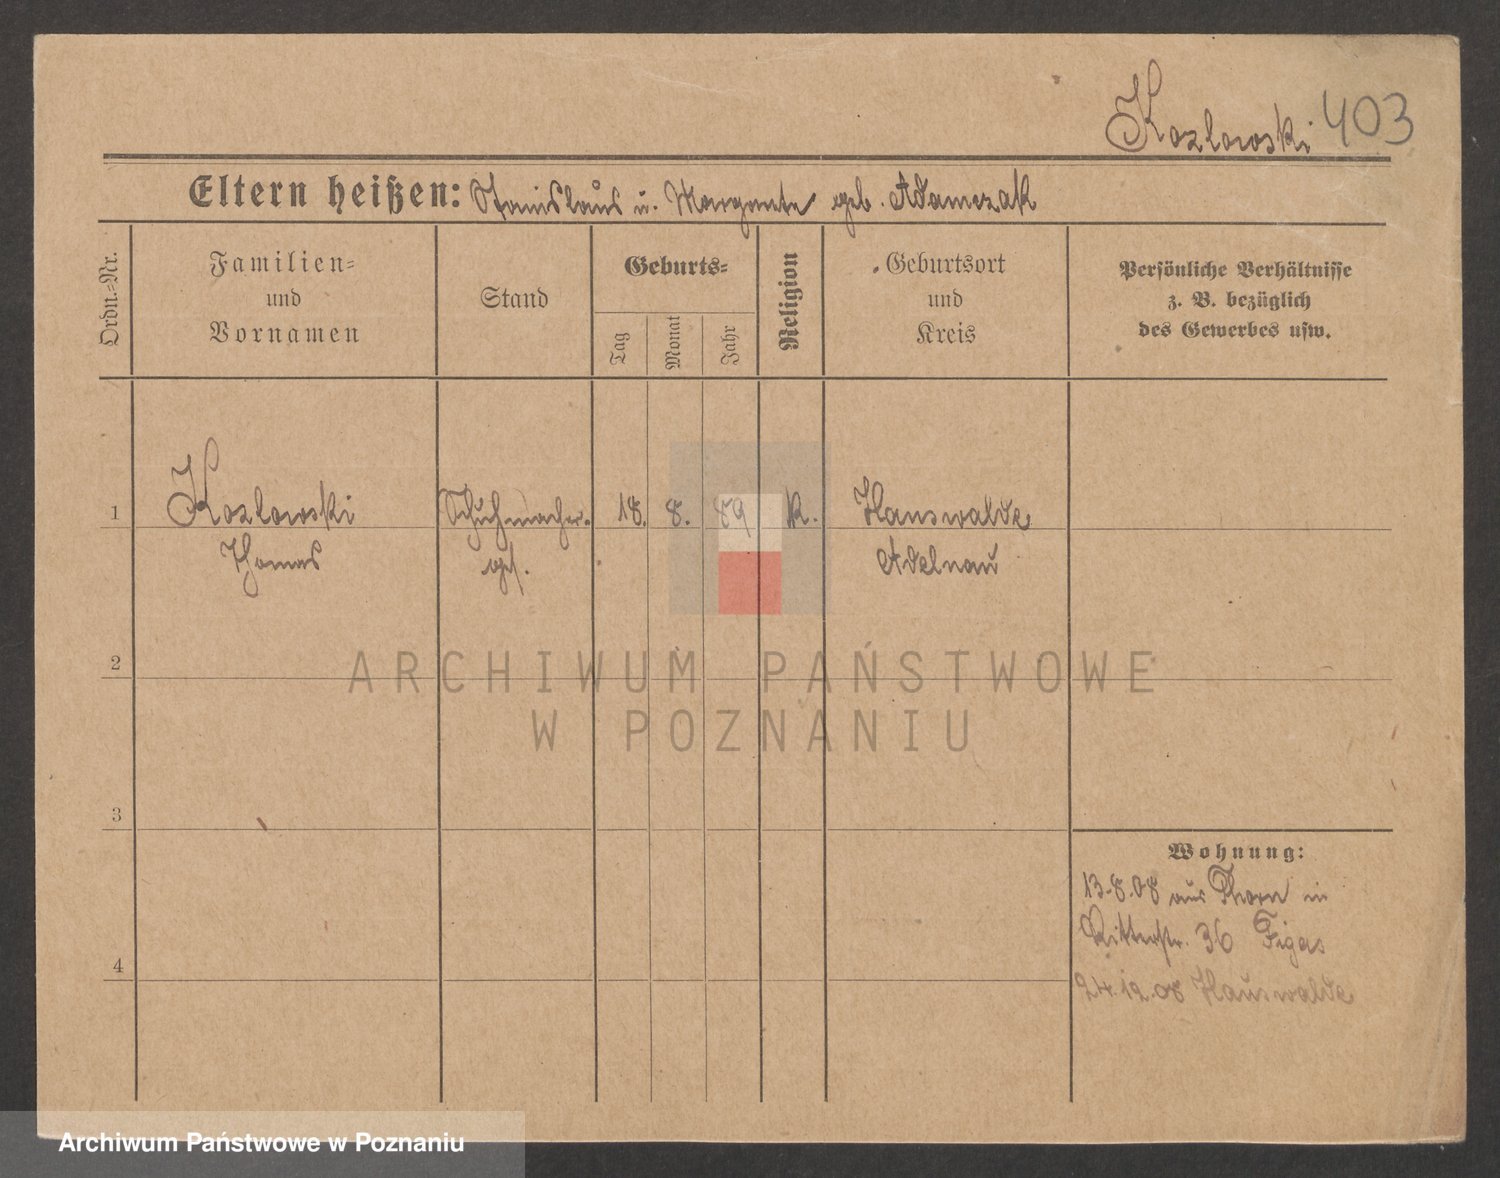 Kozlowski 403
Eltern heißen: Stanislaus u. Margarete geb. Adamczak
Ordn.-Nr.
Familien-
und
Vornamen
Stand
Geburts-
Tag
Monat
Jahr
Religion
Geburtsort
und
Kreis
Persönliche Verhältnisse
z. B. bezüglich
des Gewerbes usw.
1 Kozlowski Schuhmacher- 18. 8. 89 k. Hauswalde
Thomas ges. Adelnau
2
3
4
Wohnung:
13.8.08 aus Thorn in
Ritterstr. 36 Figas
24.12.08 Hauswalde
ARCHIWUM PAŃSTWOWE
W POZNANIU
Archiwum Państwowe w Poznaniu